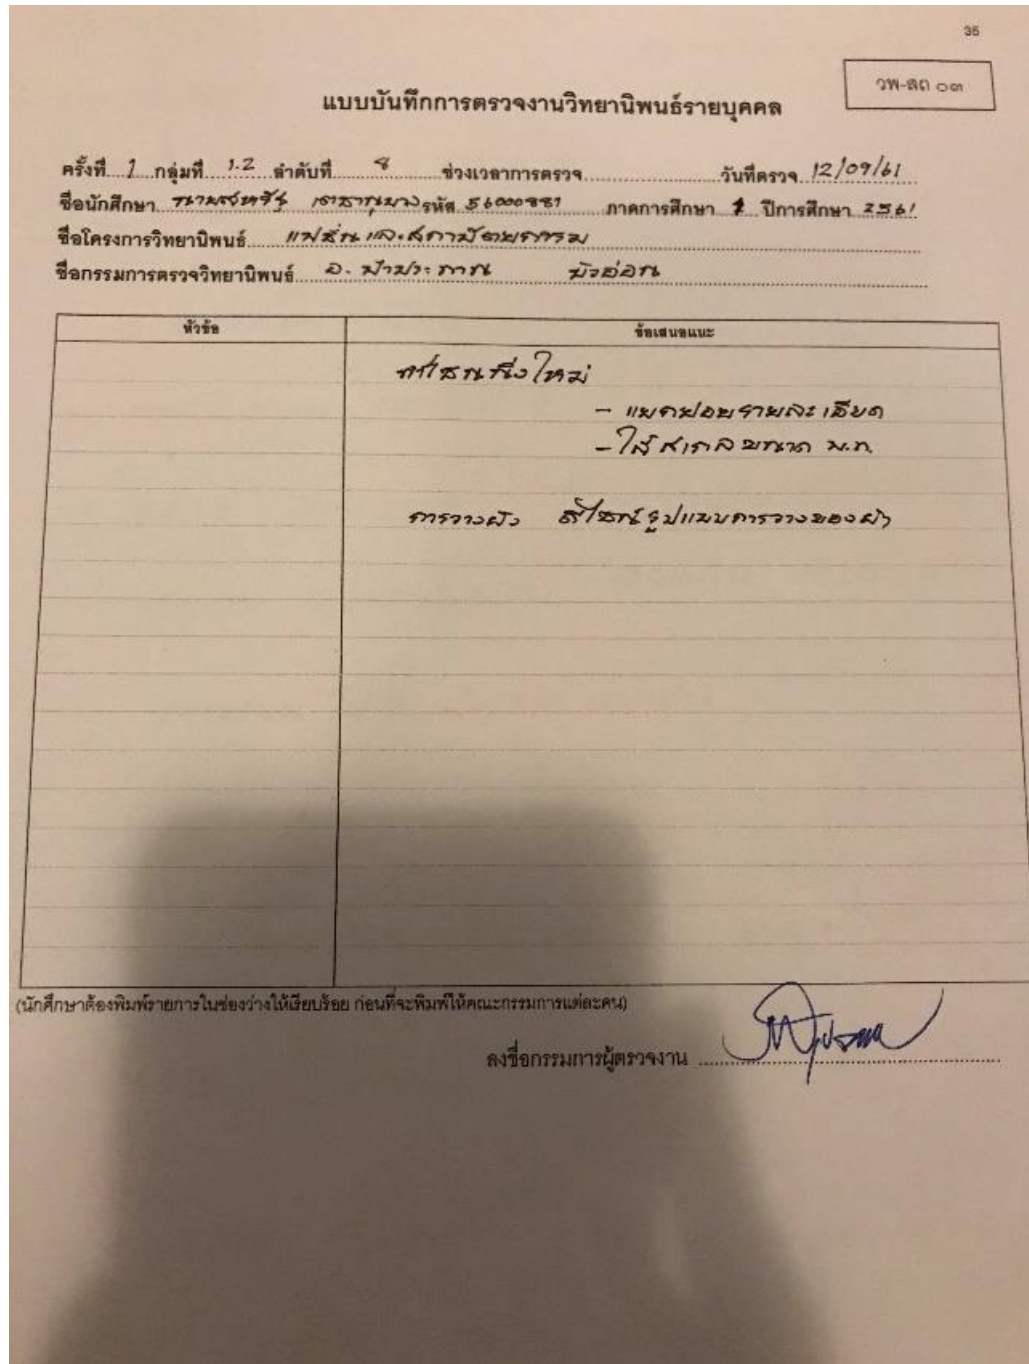 35
วพ-สถ ๐๓
แบบบันทึกการตรวจงานวิทยานิพนธ์รายบุคคล
ครั้งที่ 1 กลุ่มที่ 1.2 ลำดับที่ 8 ช่วงเวลาการตรวจ วันที่ตรวจ 12/09/61
ชื่อนักศึกษา รหัส 56000881 ภาคการศึกษา 1 ปีการศึกษา 2561
ชื่อโครงการวิทยานิพนธ์ แฟชั่นและสถาปัตยกรรม
ชื่อกรรมการตรวจวิทยานิพนธ์ อ. บัวอ่อน
หัวข้อ ข้อเสนอแนะ
ใหม่
- แยกย่อยรายละเอียด
- ใส่สเกลขนาด พ.ท.
การวางผัง ดีไซน์รูปแบบการวางของผัง
(นักศึกษาต้องพิมพ์รายการในช่องว่างให้เรียบร้อย ก่อนที่จะพิมพ์ให้คณะกรรมการแต่ละคน)
ลงชื่อกรรมการผู้ตรวจงาน